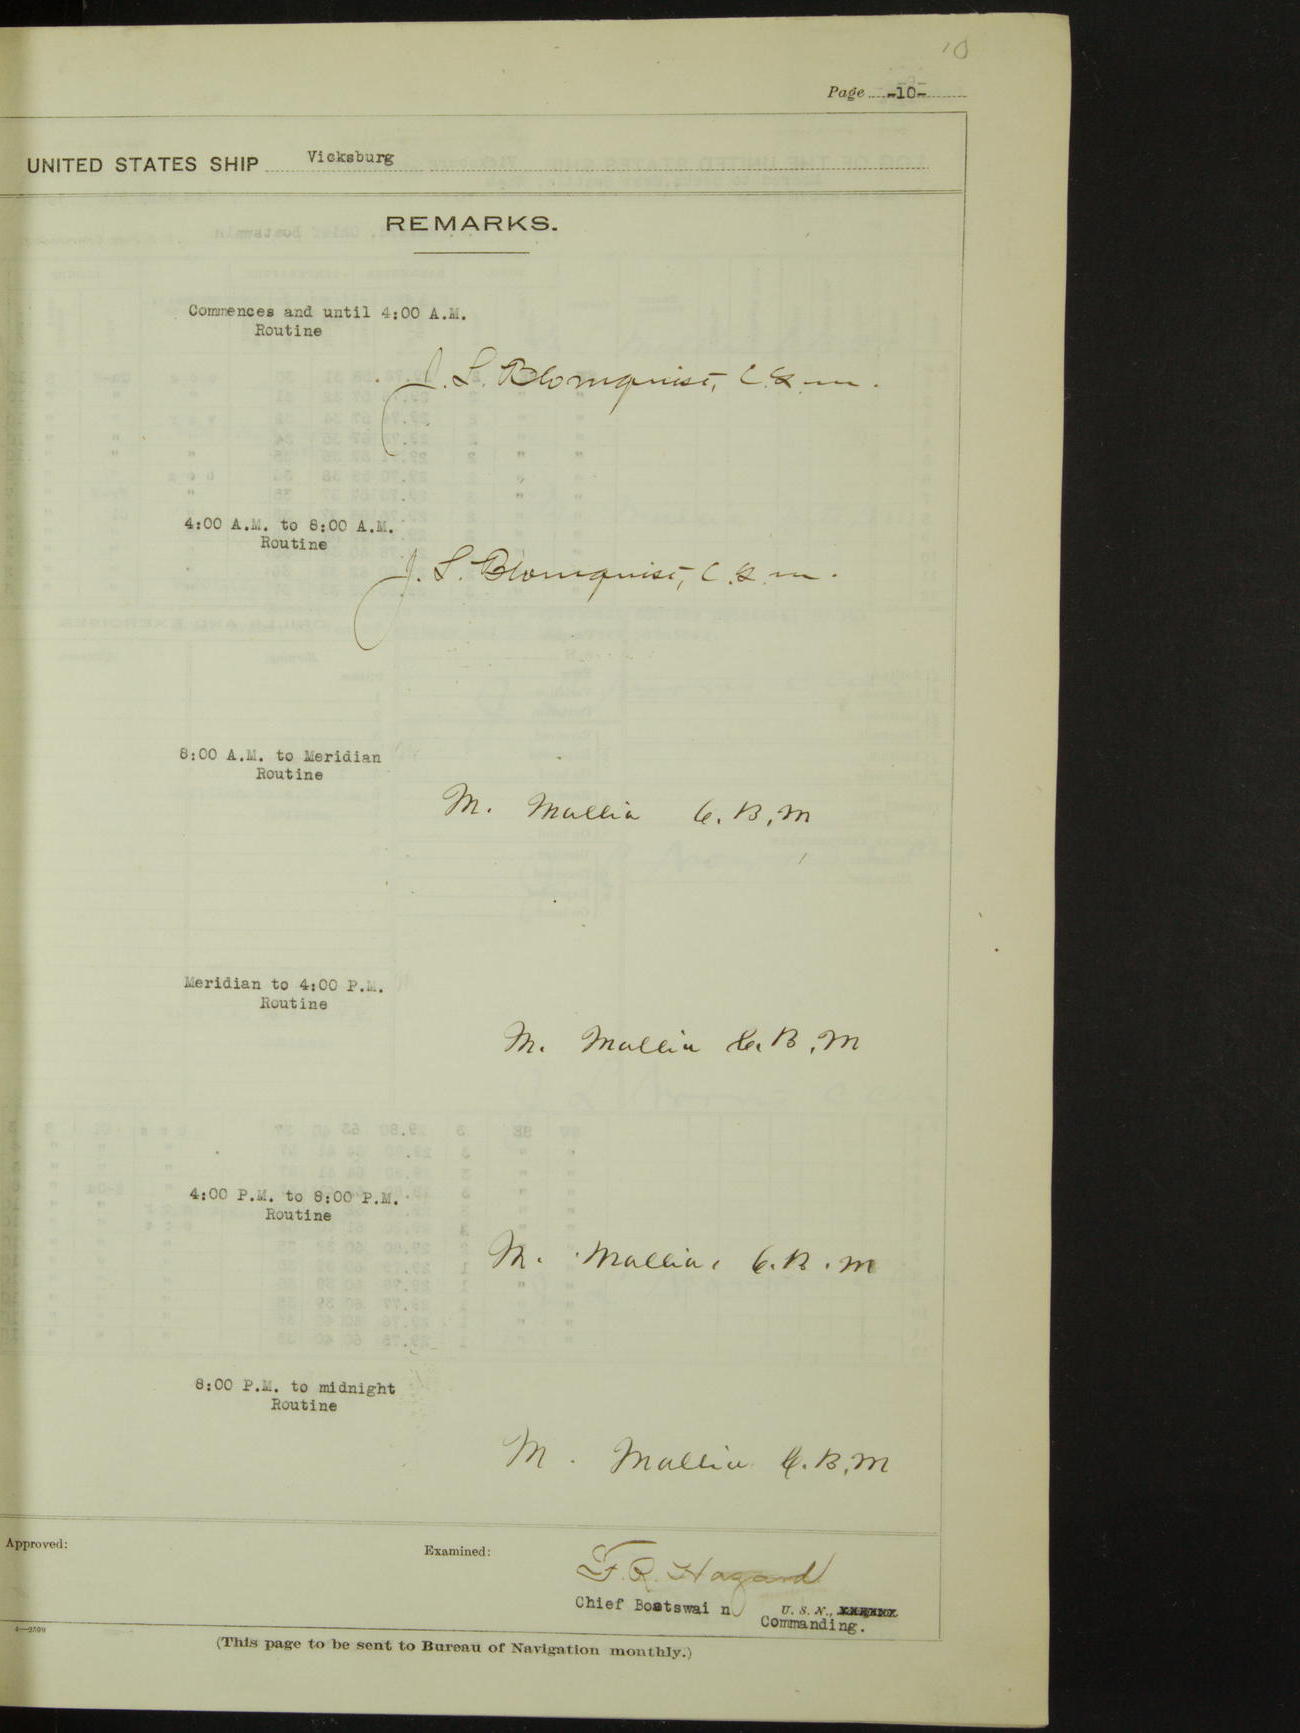 10
Page -10-
UNITED STATES SHIP Vicksburg
REMARKS.
Commences and until 4:00 A.M.
Routine
J. L. Blomquist, C. G. m.
4:00 A.M. to 8:00 A.M.
Routine
J. L. Blomquist, C. G. m.
8:00 A.M. to Meridian
Routine
M. Mallia C. B. M
Meridian to 4:00 P.M.
Routine
M. Mallia C. B. M
4:00 P.M. to 8:00 P.M.
Routine
M. Mallia, C. B. M
8:00 P.M. to midnight
Routine
M. Mallia C. B. M
Approved:
Examined:
F. R. Hazard
Chief Boatswai n U. S. N.,
Commanding.
4—2599
(This page to be sent to Bureau of Navigation monthly.)